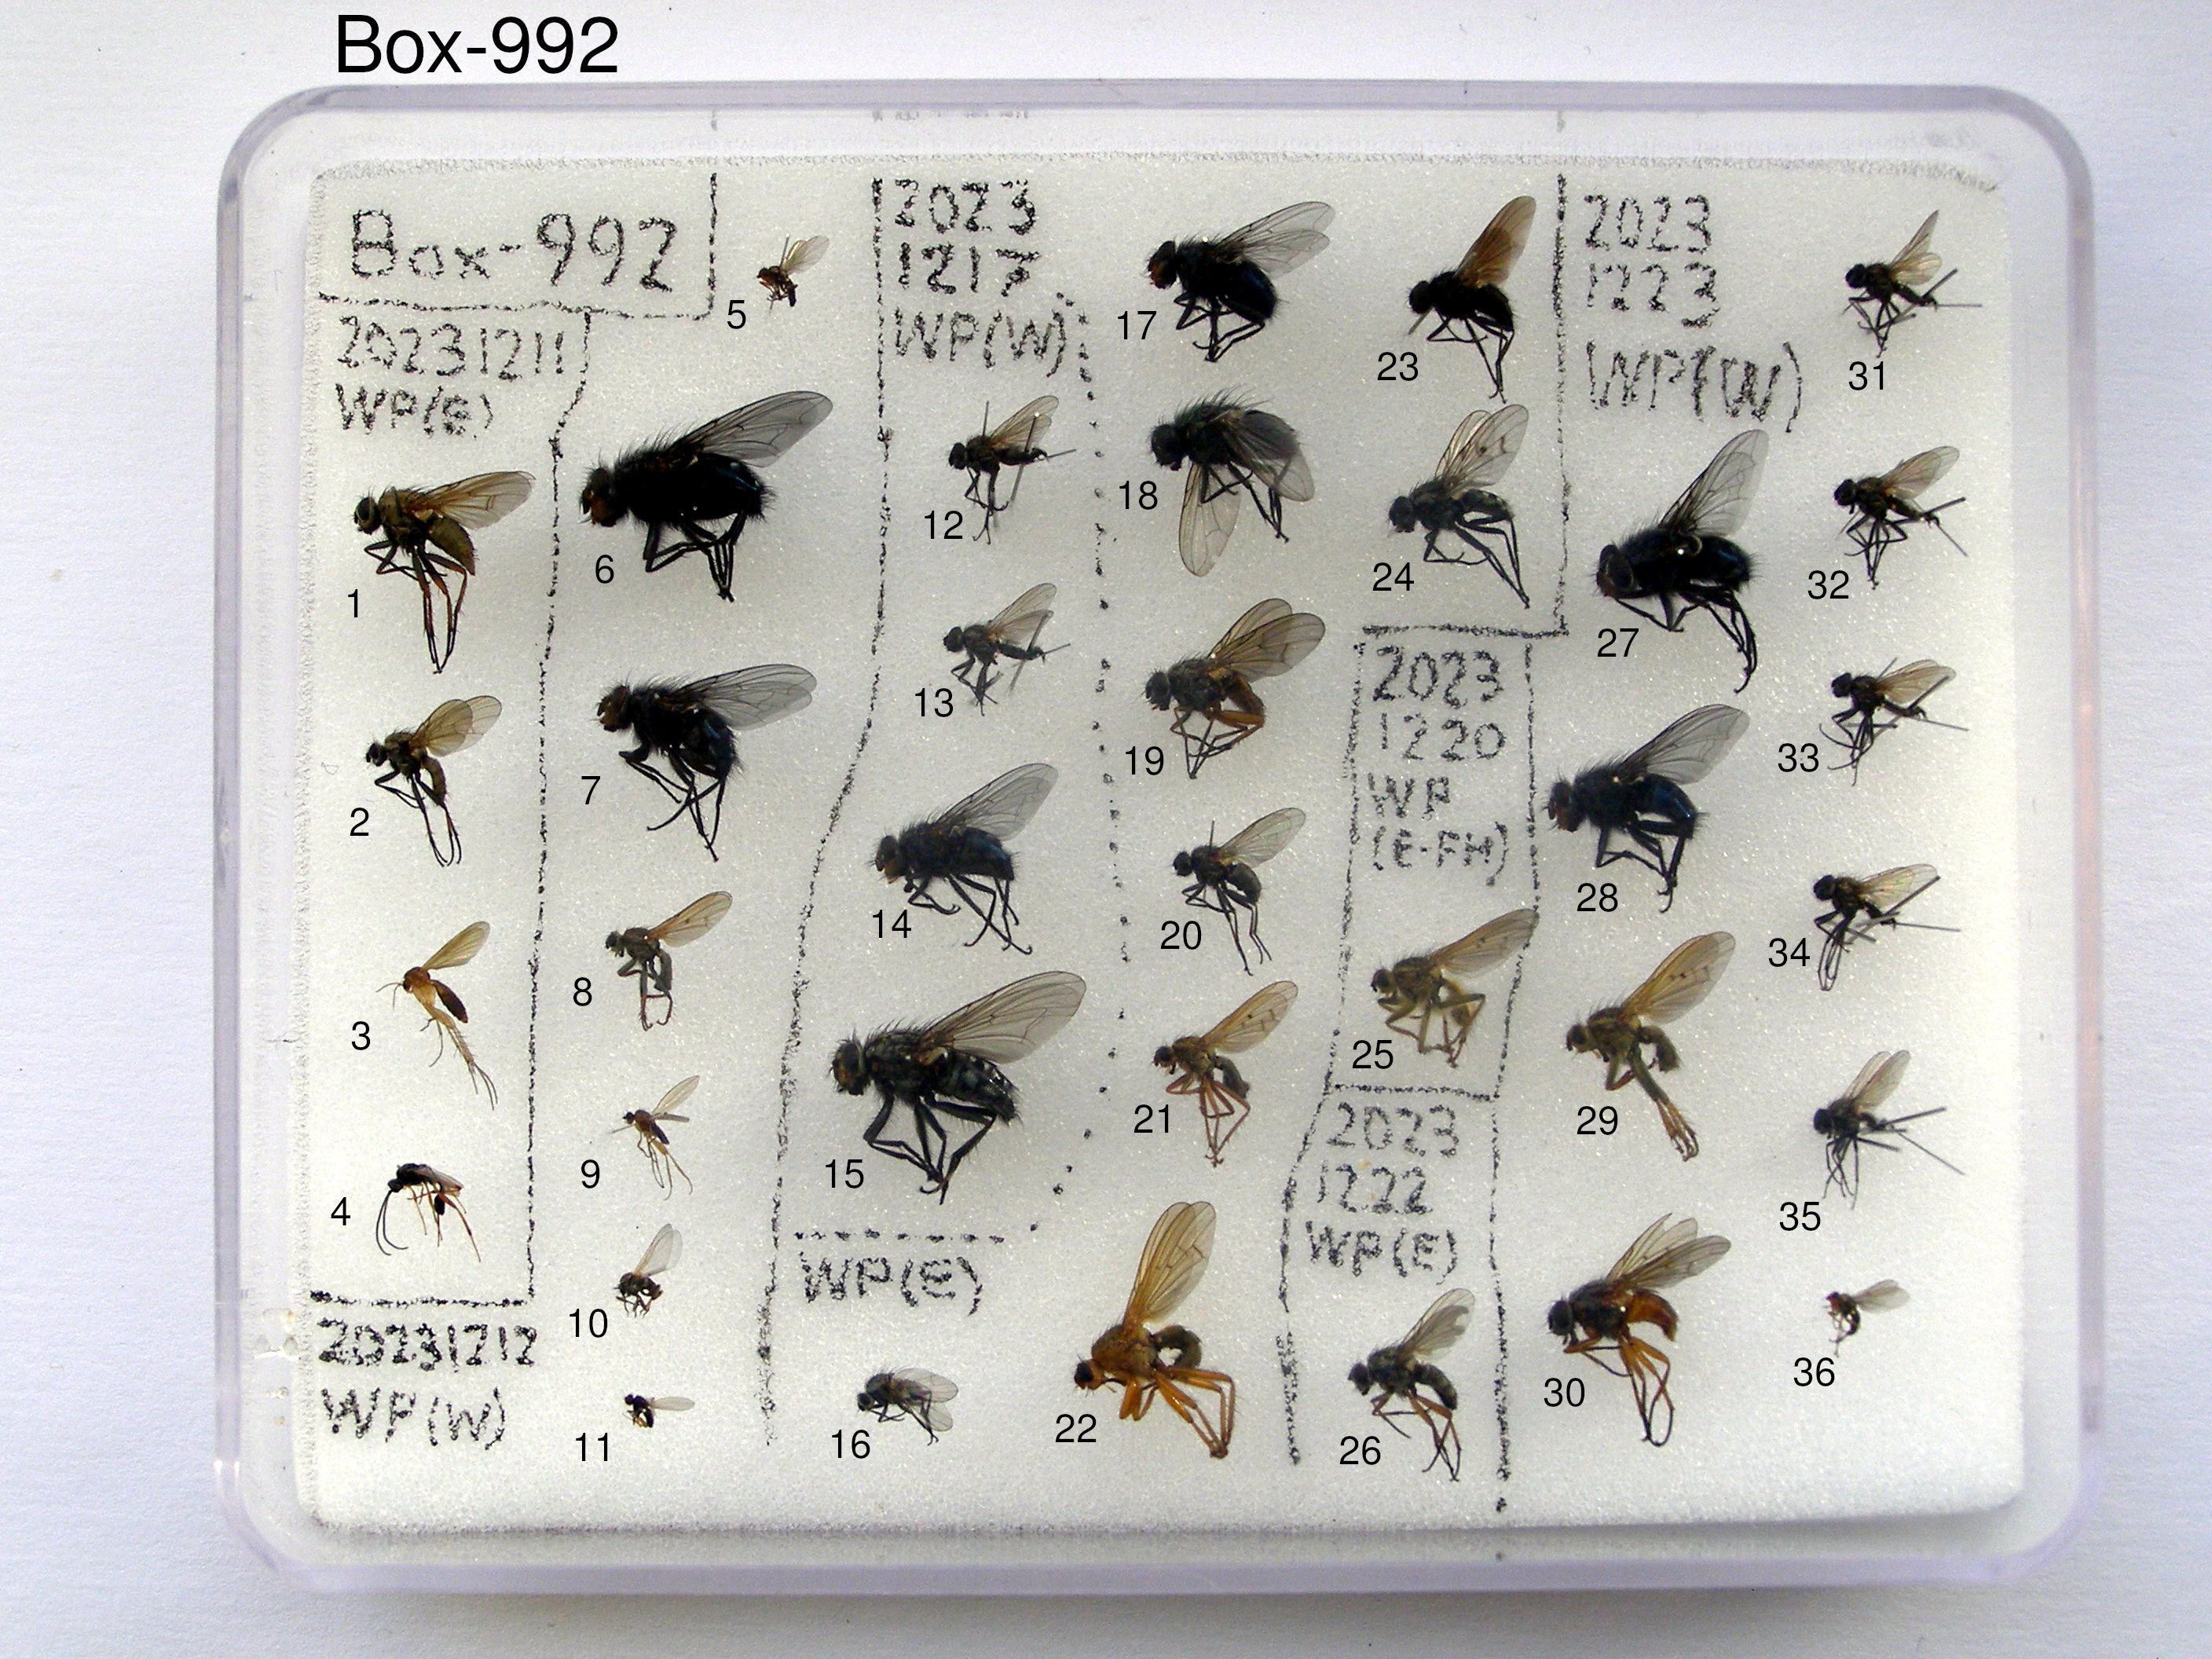 Box-992
Box-992
20231211
WP(E)
1
2
3
4
20231212
WP(W)
5
6
7
8
9
10
11
2023
1217
WP(W)
12
13
14
15
WP(E)
16
17
18
19
20
21
22
23
24
2023
1220
WP
(E-FH)
25
2023
1222
WP(E)
26
2023
1223
WP(W)
27
28
29
30
31
32
33
34
35
36